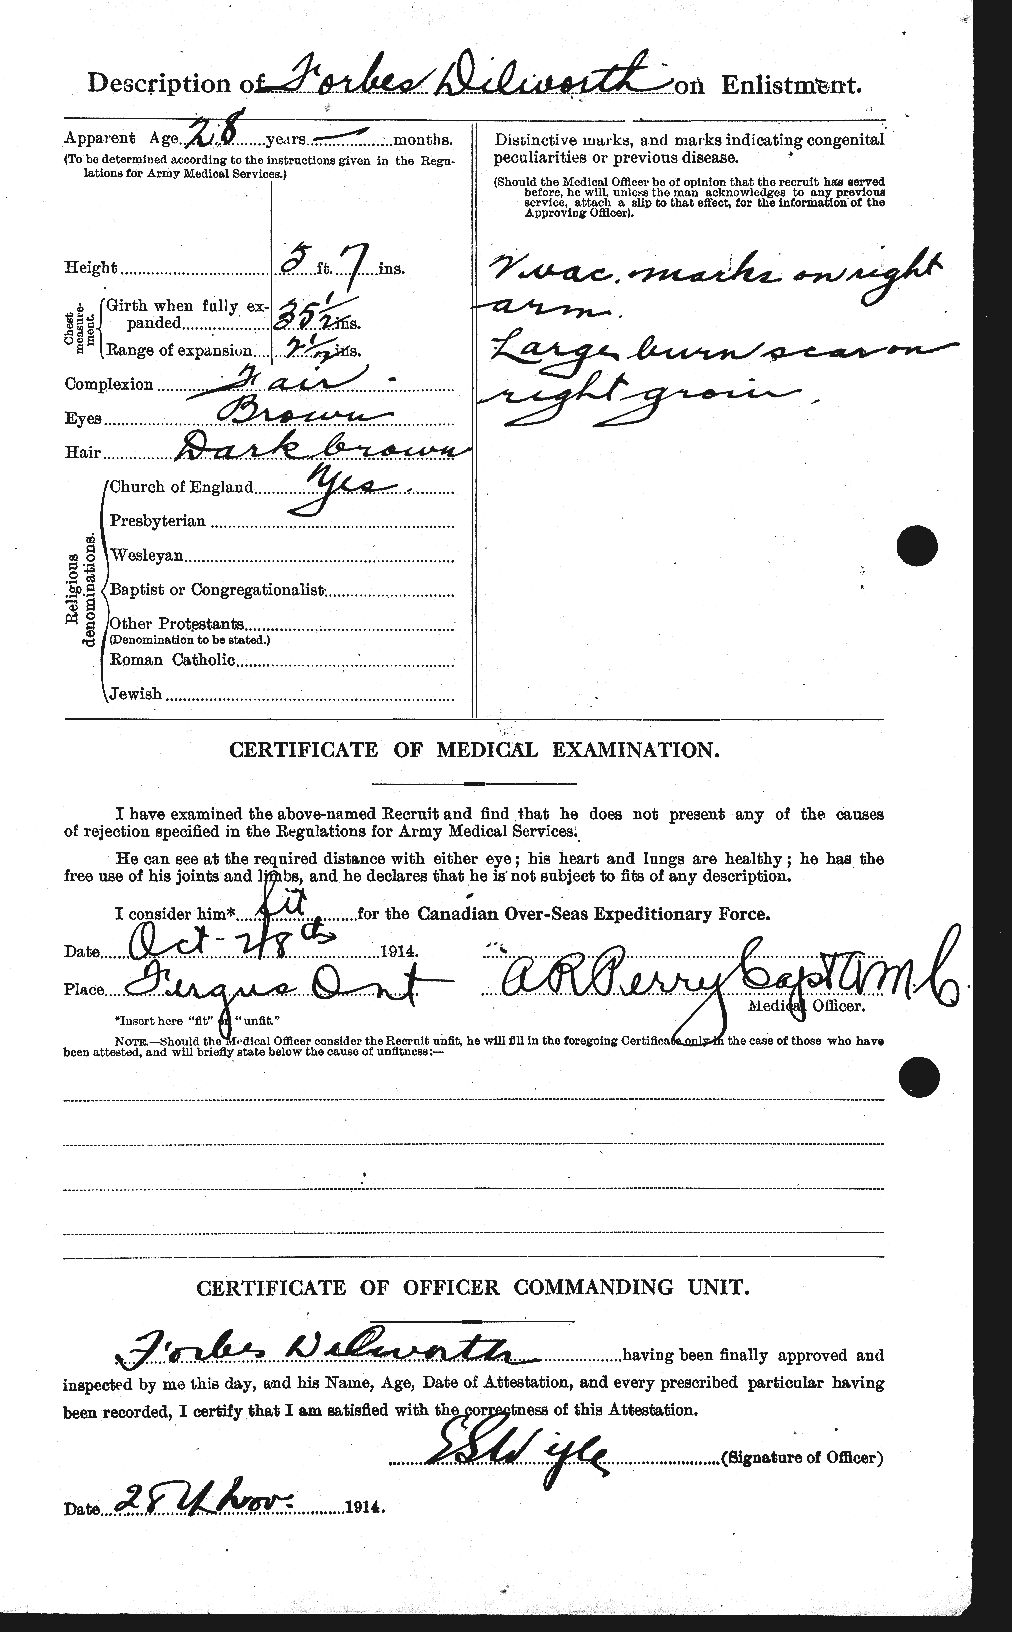 Description of Forbes Dilworth on Enlistment.
Apparent Age 28 years — months.
(To be determined according to the instructions given in the Regu-
lations for Army Medical Services.)
Height 5 ft. 7 ins.
Chest measure-ment.
Girth when fully ex-
panded 35 1/2 ins.
Range of expansion 2 1/2 ins.
Complexion Fair
Eyes Brown
Hair Dark brown
Religious denominations.
Church of England Yes.
Presbyterian
Wesleyan
Baptist or Congregationalist
Other Protestants
(Denomination to be stated.)
Roman Catholic
Jewish
Distinctive marks, and marks indicating congenital
peculiarities or previous disease.
(Should the Medical Officer be of opinion that the recruit has served
before, he will, unless the man acknowledges to any previous
service, attach a slip to that effect, for the information of the
Approving Officer).
vac. marks on right
arm.
Large burn scar on
right groin.
CERTIFICATE OF MEDICAL EXAMINATION.
I have examined the above-named Recruit and find that he does not present any of the causes
of rejection specified in the Regulations for Army Medical Services.
He can see at the required distance with either eye; his heart and lungs are healthy; he has the
free use of his joints and limbs, and he declares that he is not subject to fits of any description.
I consider him* fit for the Canadian Over-Seas Expeditionary Force.
Date Oct - 28th 1914.
Place Fergus Ont
A R Perry Capt A M C.
Medical Officer.
*Insert here "fit" or "unfit."
NOTE.—Should the Medical Officer consider the Recruit unfit, he will fill in the foregoing Certificate only in the case of those who have
been attested, and will briefly state below the cause of unfitness:—
CERTIFICATE OF OFFICER COMMANDING UNIT.
Forbes Dilworth having been finally approved and
inspected by me this day, and his Name, Age, Date of Attestation, and every prescribed particular having
been recorded, I certify that I am satisfied with the correctness of this Attestation.
(Signature of Officer)
Date 28th Nov. 1914.